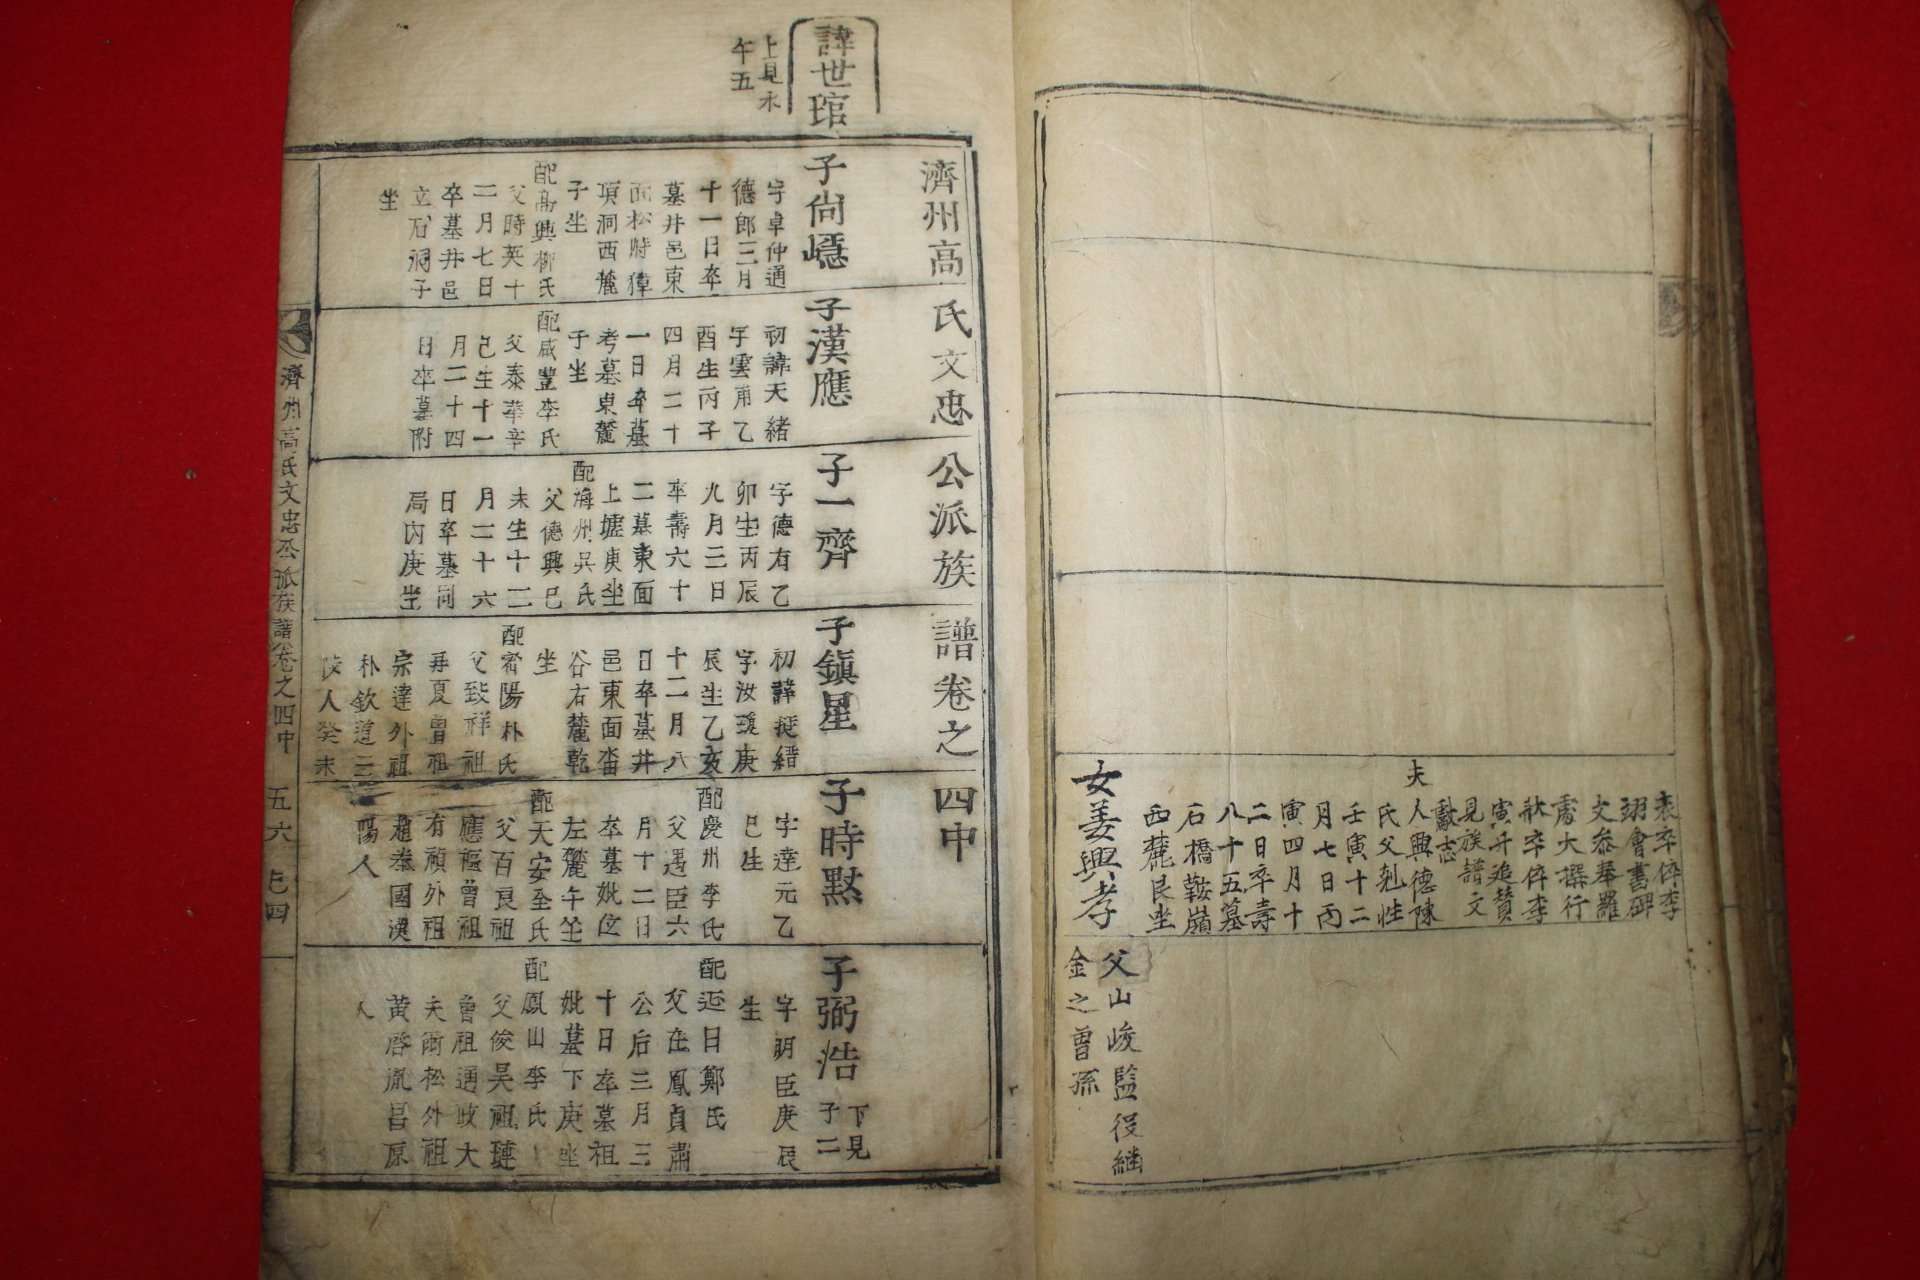 女姜興孝
夫
表卒倅李
翊會書碑
文叅奉羅
燾大撰行
狀卒倅李
寅斗追贊
見族譜文
獻志
人興德陳
氏父剋性
壬寅十二
月七日丙
寅四月十
二日卒壽
八十五墓
石橋鞍嶺
西麓艮坐
父山峻監役繼
金之曾孫
濟州高氏文忠公派族譜卷之四中
諱世琯
上見水
午五
子尙㠥
字卓仲通
德郎三月
十一日卒
墓井邑東
面松峙獐
項洞西麓
子坐
配高興柳氏
父時英十
二月七日
卒墓井邑
立石洞子
坐
子漢應
初諱天緒
字雲甫乙
酉生丙子
四月二十
一日卒墓
考墓東麓
子坐
配咸豐李氏
父泰華辛
己生十一
月二十四
日卒墓附
子一齊
字德有乙
卯生丙辰
九月三日
卒壽六十
二墓東面
上墟庚坐
配海州吳氏
父德興巳
未生十二
月二十六
日卒墓同
局內庚坐
子鎭星
初諱挺縉
字汝瓊庚
辰生乙亥
十二月八
日卒墓井
邑東面畓
谷右麓乾
坐
配密陽朴氏
父致祥祖
再夏曾祖
宗達外祖
朴欽道三
陜人癸未
子時黙
字達元乙
巳生
配慶州李氏
父遇臣六
月十二日
卒墓妣位
左麓午坐
配天安全氏
父百良祖
應樞曾祖
有禎外祖
趙泰國漢
陽人
子弼浩
下見
子二
字明臣庚辰
生
配迎日鄭氏
父在鳳貞肅
公后三月三
十日卒墓祖
妣墓下庚坐
配鳳山李氏
父俊吴祖璉
曾祖通政大
夫爾松外祖
黃啓胤昌原
人
濟州高氏文忠公派族譜卷之四中
五六
巳四